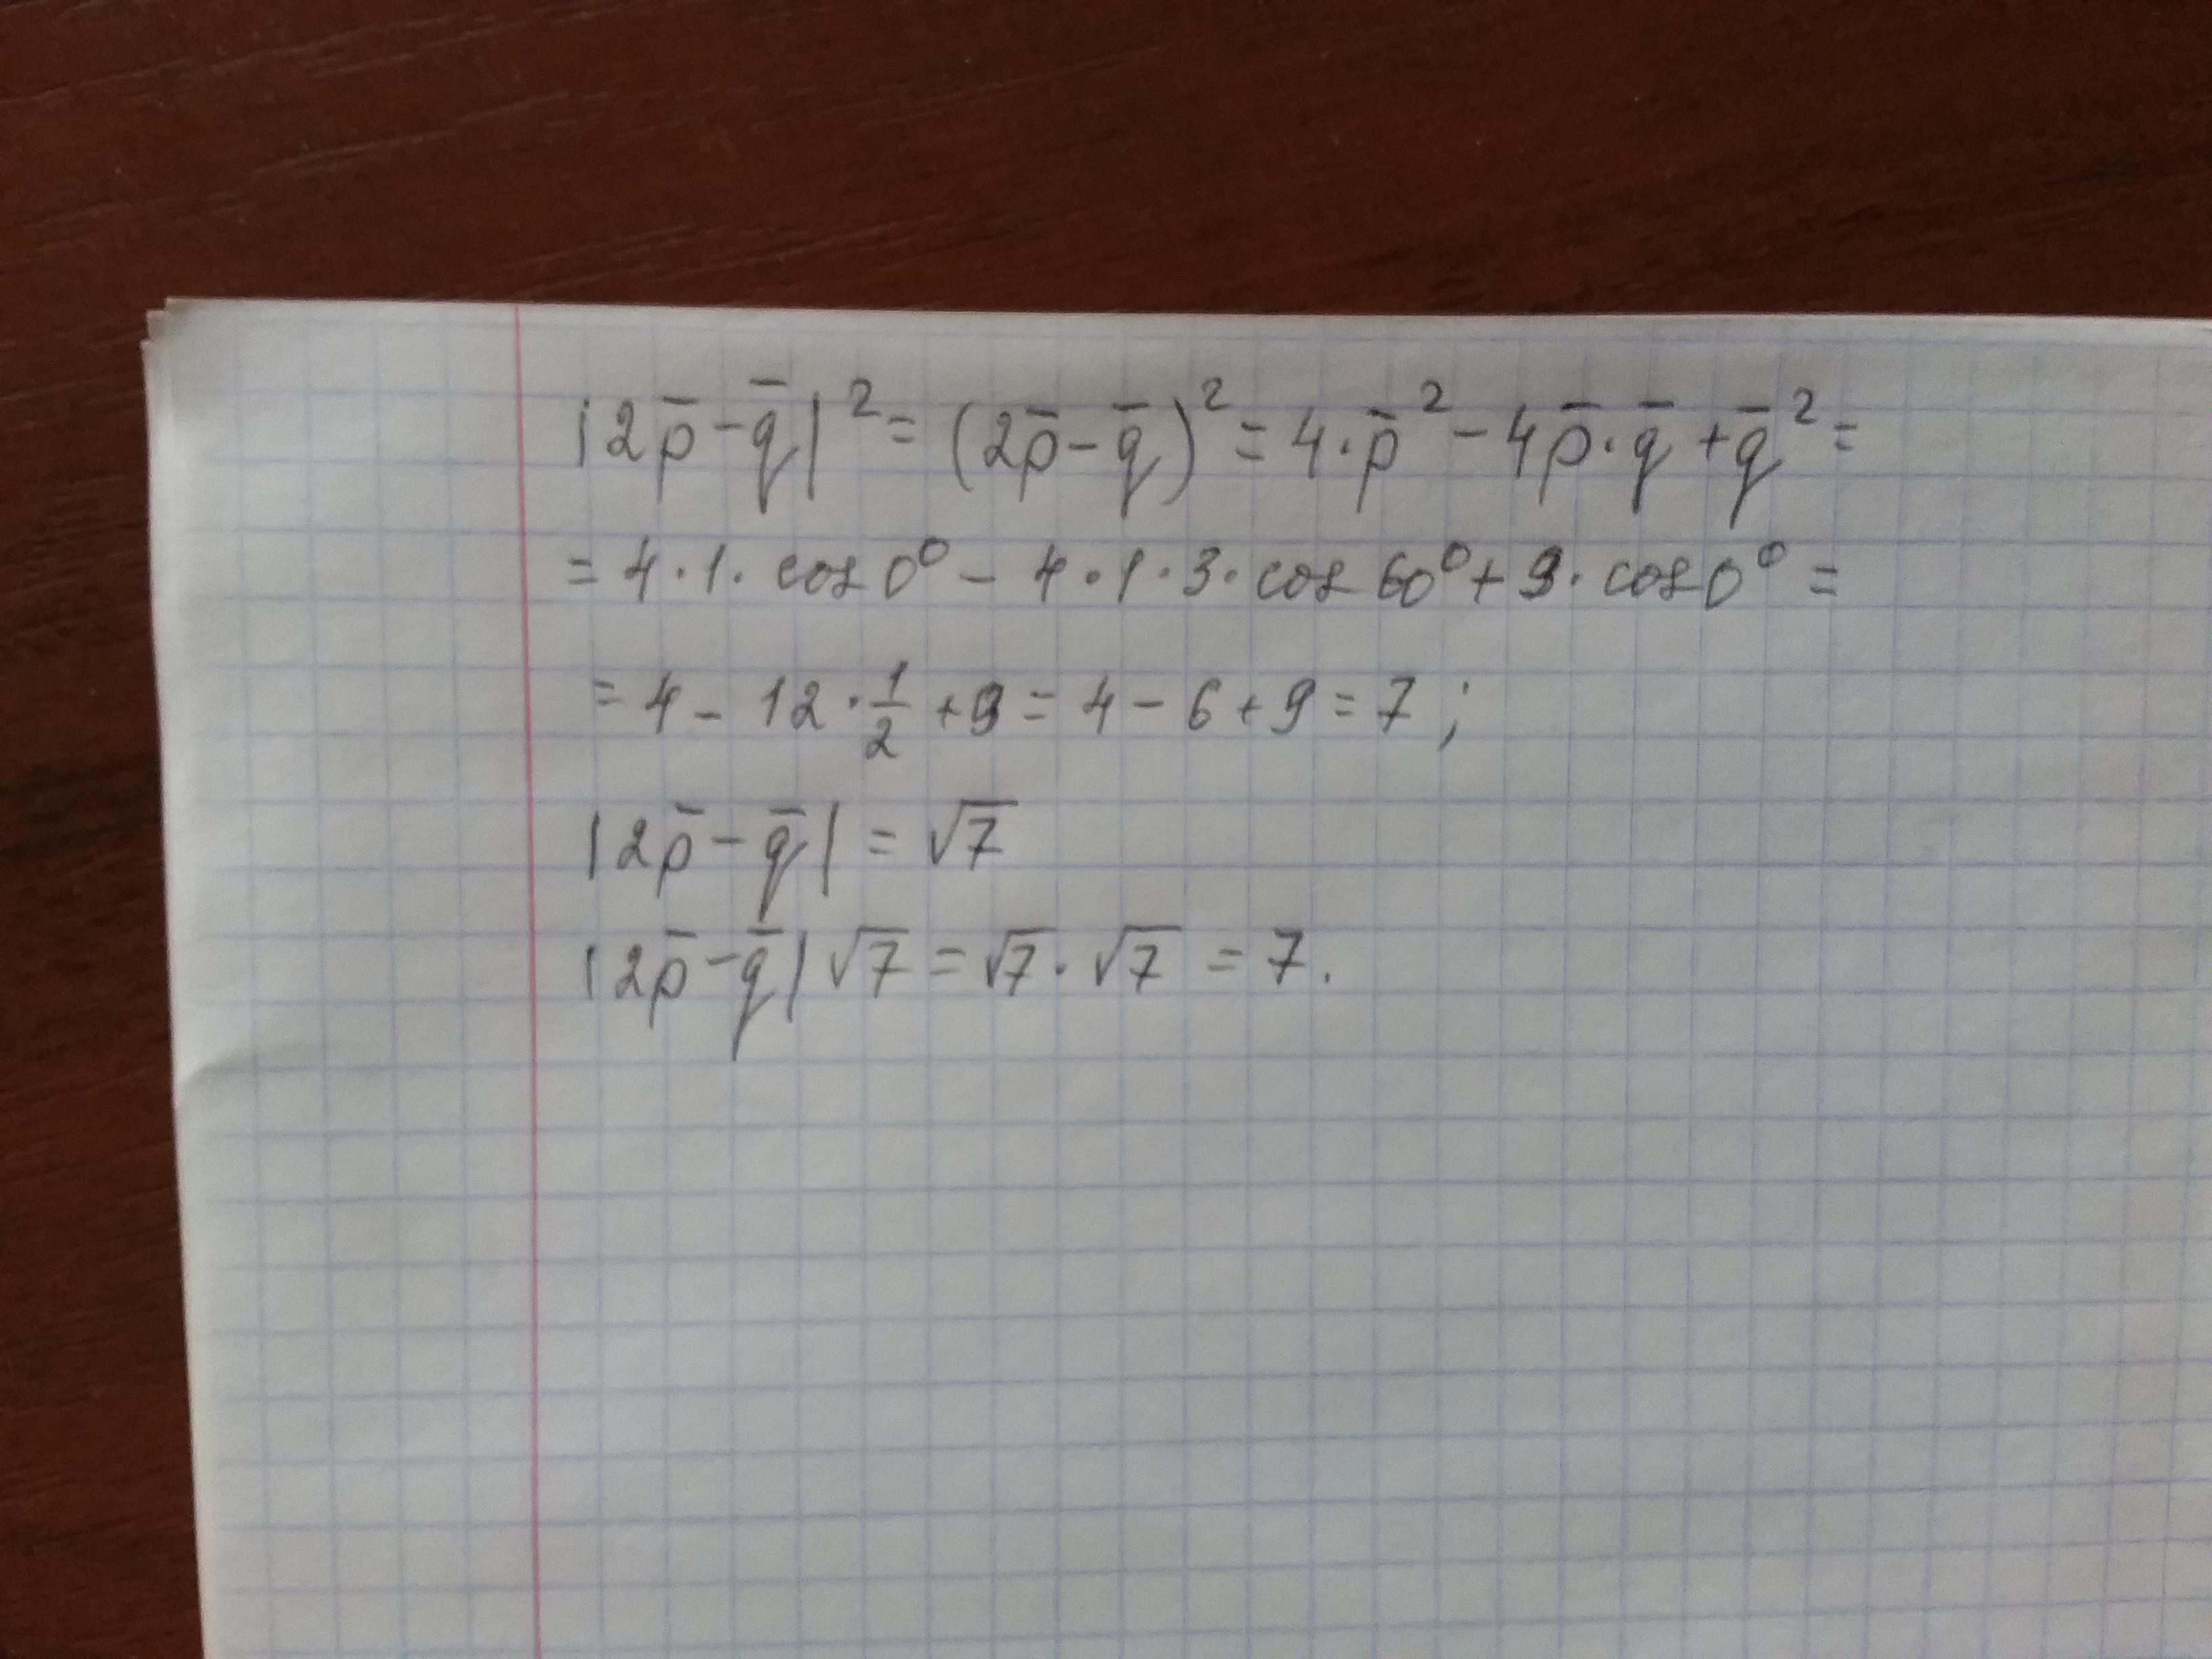 |2p̄-q̄|² = (2p̄-q̄)² = 4·p̄² - 4p̄·q̄ + q̄² =
= 4·1·cos0° - 4·1·3·cos60° + 9·cos0° =
= 4 - 12·1/2 + 9 = 4 - 6 + 9 = 7;
|2p̄-q̄| = √7
|2p̄-q̄|√7 = √7·√7 = 7.